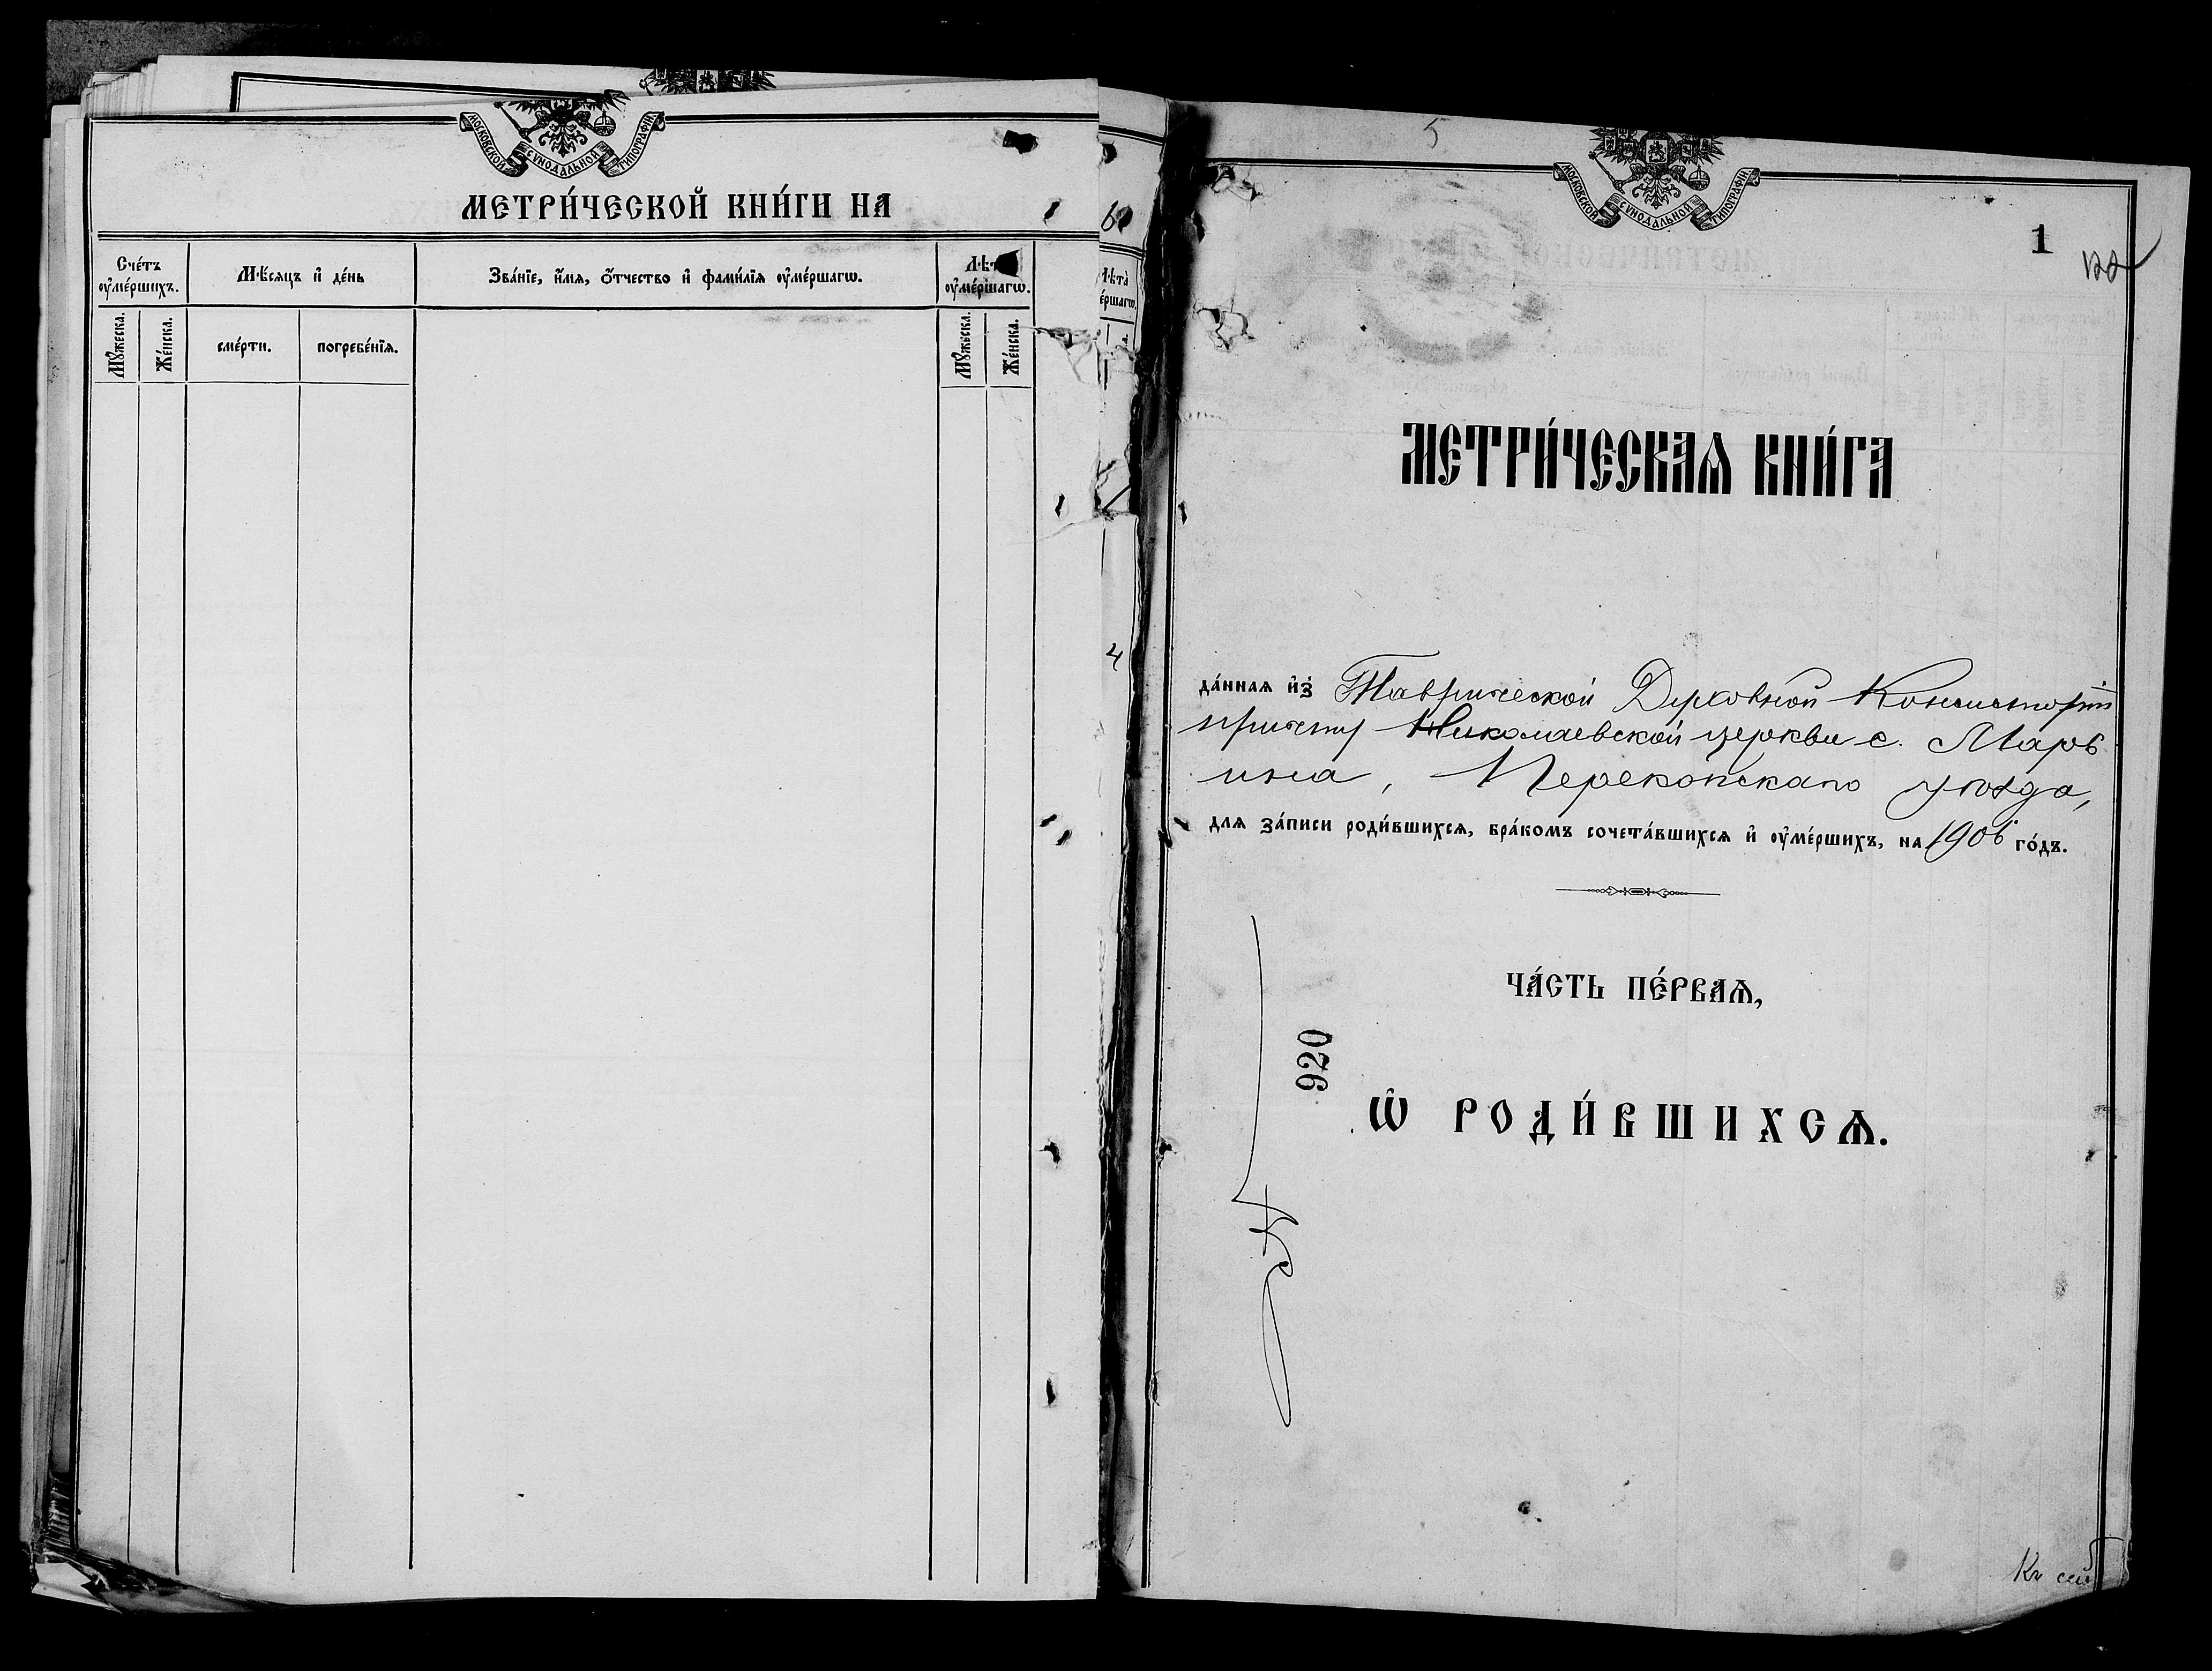 МОСКОВСКОЙ СѴНОДАЛЬНОЙ ТИПОГРАФІИ
МЕТРИ́ЧЕСКОЙ КНИ́ГИ НА
Сче́тъ ᲂу҆ме́ршихъ.
Мѣ́сяцъ и҆ де́нь
Зва́нїе, и҆́мя, ѻ҆́тчество и҆ фами́лїя ᲂу҆ме́ршагѡ.
Лѣт
ᲂу҆ме́ршагѡ.
Мꙋ́жеска.
Же́нска.
сме́рти.
погребе́нїѧ.
Мꙋ́жеска.
Же́нска.
Лѣта̀
е́ршагѡ.
4
5
МОСКОВСКОЙ СѴНОДАЛЬНОЙ ТИПОГРАФІИ
1
МЕТРИ́ЧЕСКАѦ КНИ́ГА
да́ннаѧ и҆з̾ Таврической Духовной Консисторіи
причту Николаевской церкви с. Марь
ина, Перекопскаго уѣзда,
для за́писи роди́вшихсѧ, бра́комъ сочета́вшихсѧ и҆ ᲂу҆ме́ршихъ, на 1906 го́дъ.
ЧА́СТЬ ПЕ́РВАѦ,
920
Ѡ҆ РОДИ́ВШИХСѦ.